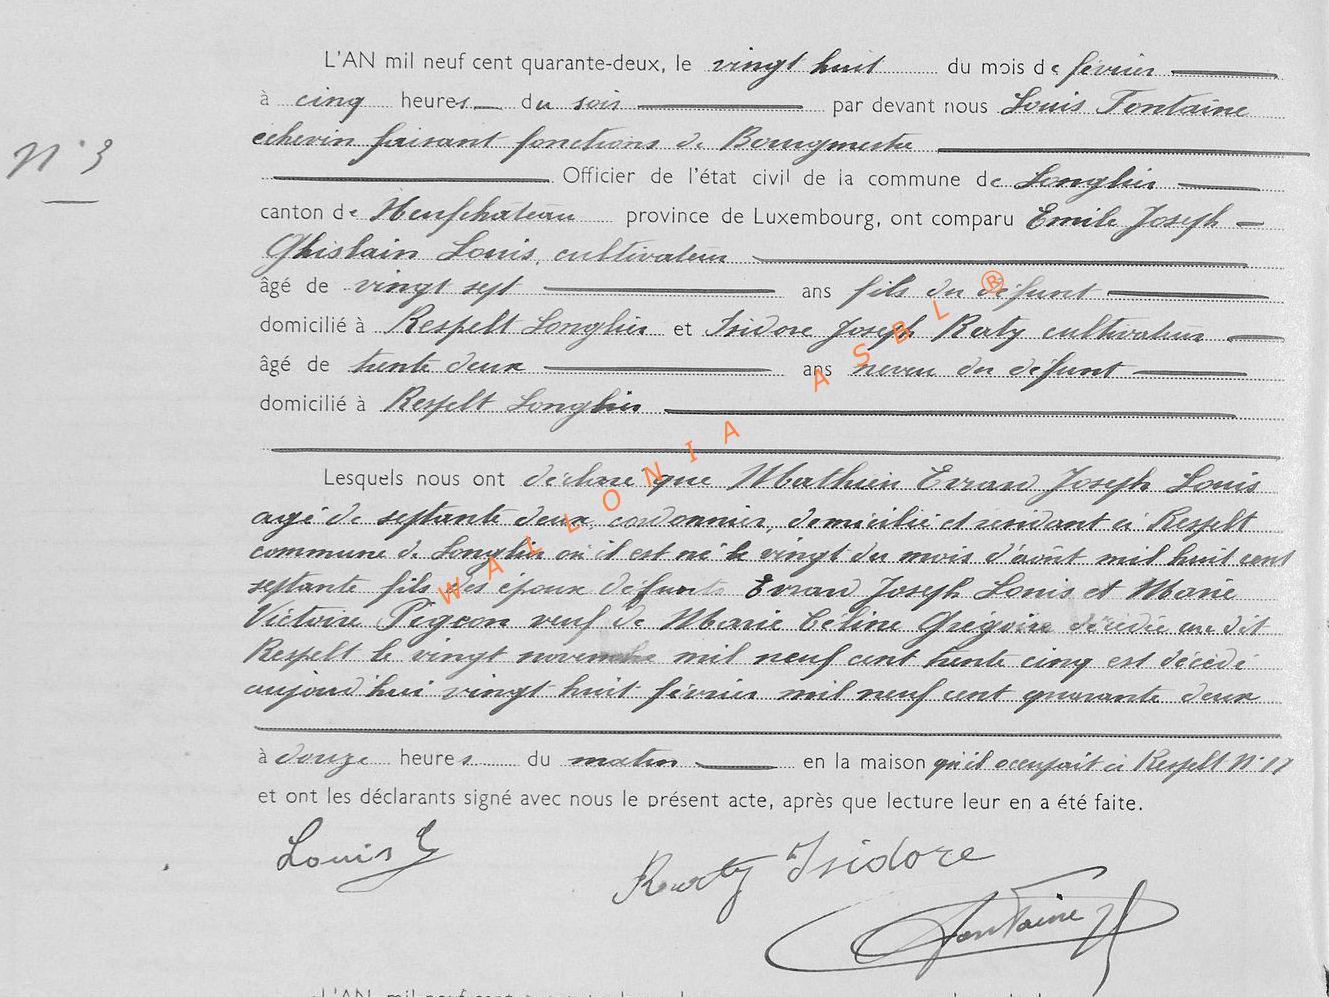 L'AN mil neuf cent quarante-deux, le vingt huit du mois de février
à cinq heures du soir par devant nous Louis Fontaine
N° 3
echevin faisant fonctions de Bourgmestre
Officier de l'état civil de la commune de Longlier
canton de Neufchateau province de Luxembourg, ont comparu Emile Joseph
Ghislain Louis, cultivateur
âgé de vingt sept ans fils du défunt
domicilié à Respelt Longlier et Isidore Joseph Raty cultivateur
âgé de trente deux ans neveu du défunt
domicilié à Respelt Longlier
Lesquels nous ont déclaré que Mathieu Evrard Joseph Louis
agé de septante deux, cordonnier, domicilié et résidant à Respelt
commune de Longlier où il est né le vingt du mois d'août mil huit cent
septante fils des époux défunts Evrard Joseph Louis et Marie
Victoire Pigeon veuf de Marie Céline Grégoire décédée au dit
Respelt le vingt novembre mil neuf cent trente cinq est décédé
aujourd'hui vingt huit février mil neuf cent quarante deux
à douze heures du matin en la maison qu'il occupait à Respelt N° 17
et ont les déclarants signé avec nous le présent acte, après que lecture leur en a été faite.
Louis E
Raty Isidore
Fontaine
WALLONIA ASBL ®
L'AN mil neuf cent